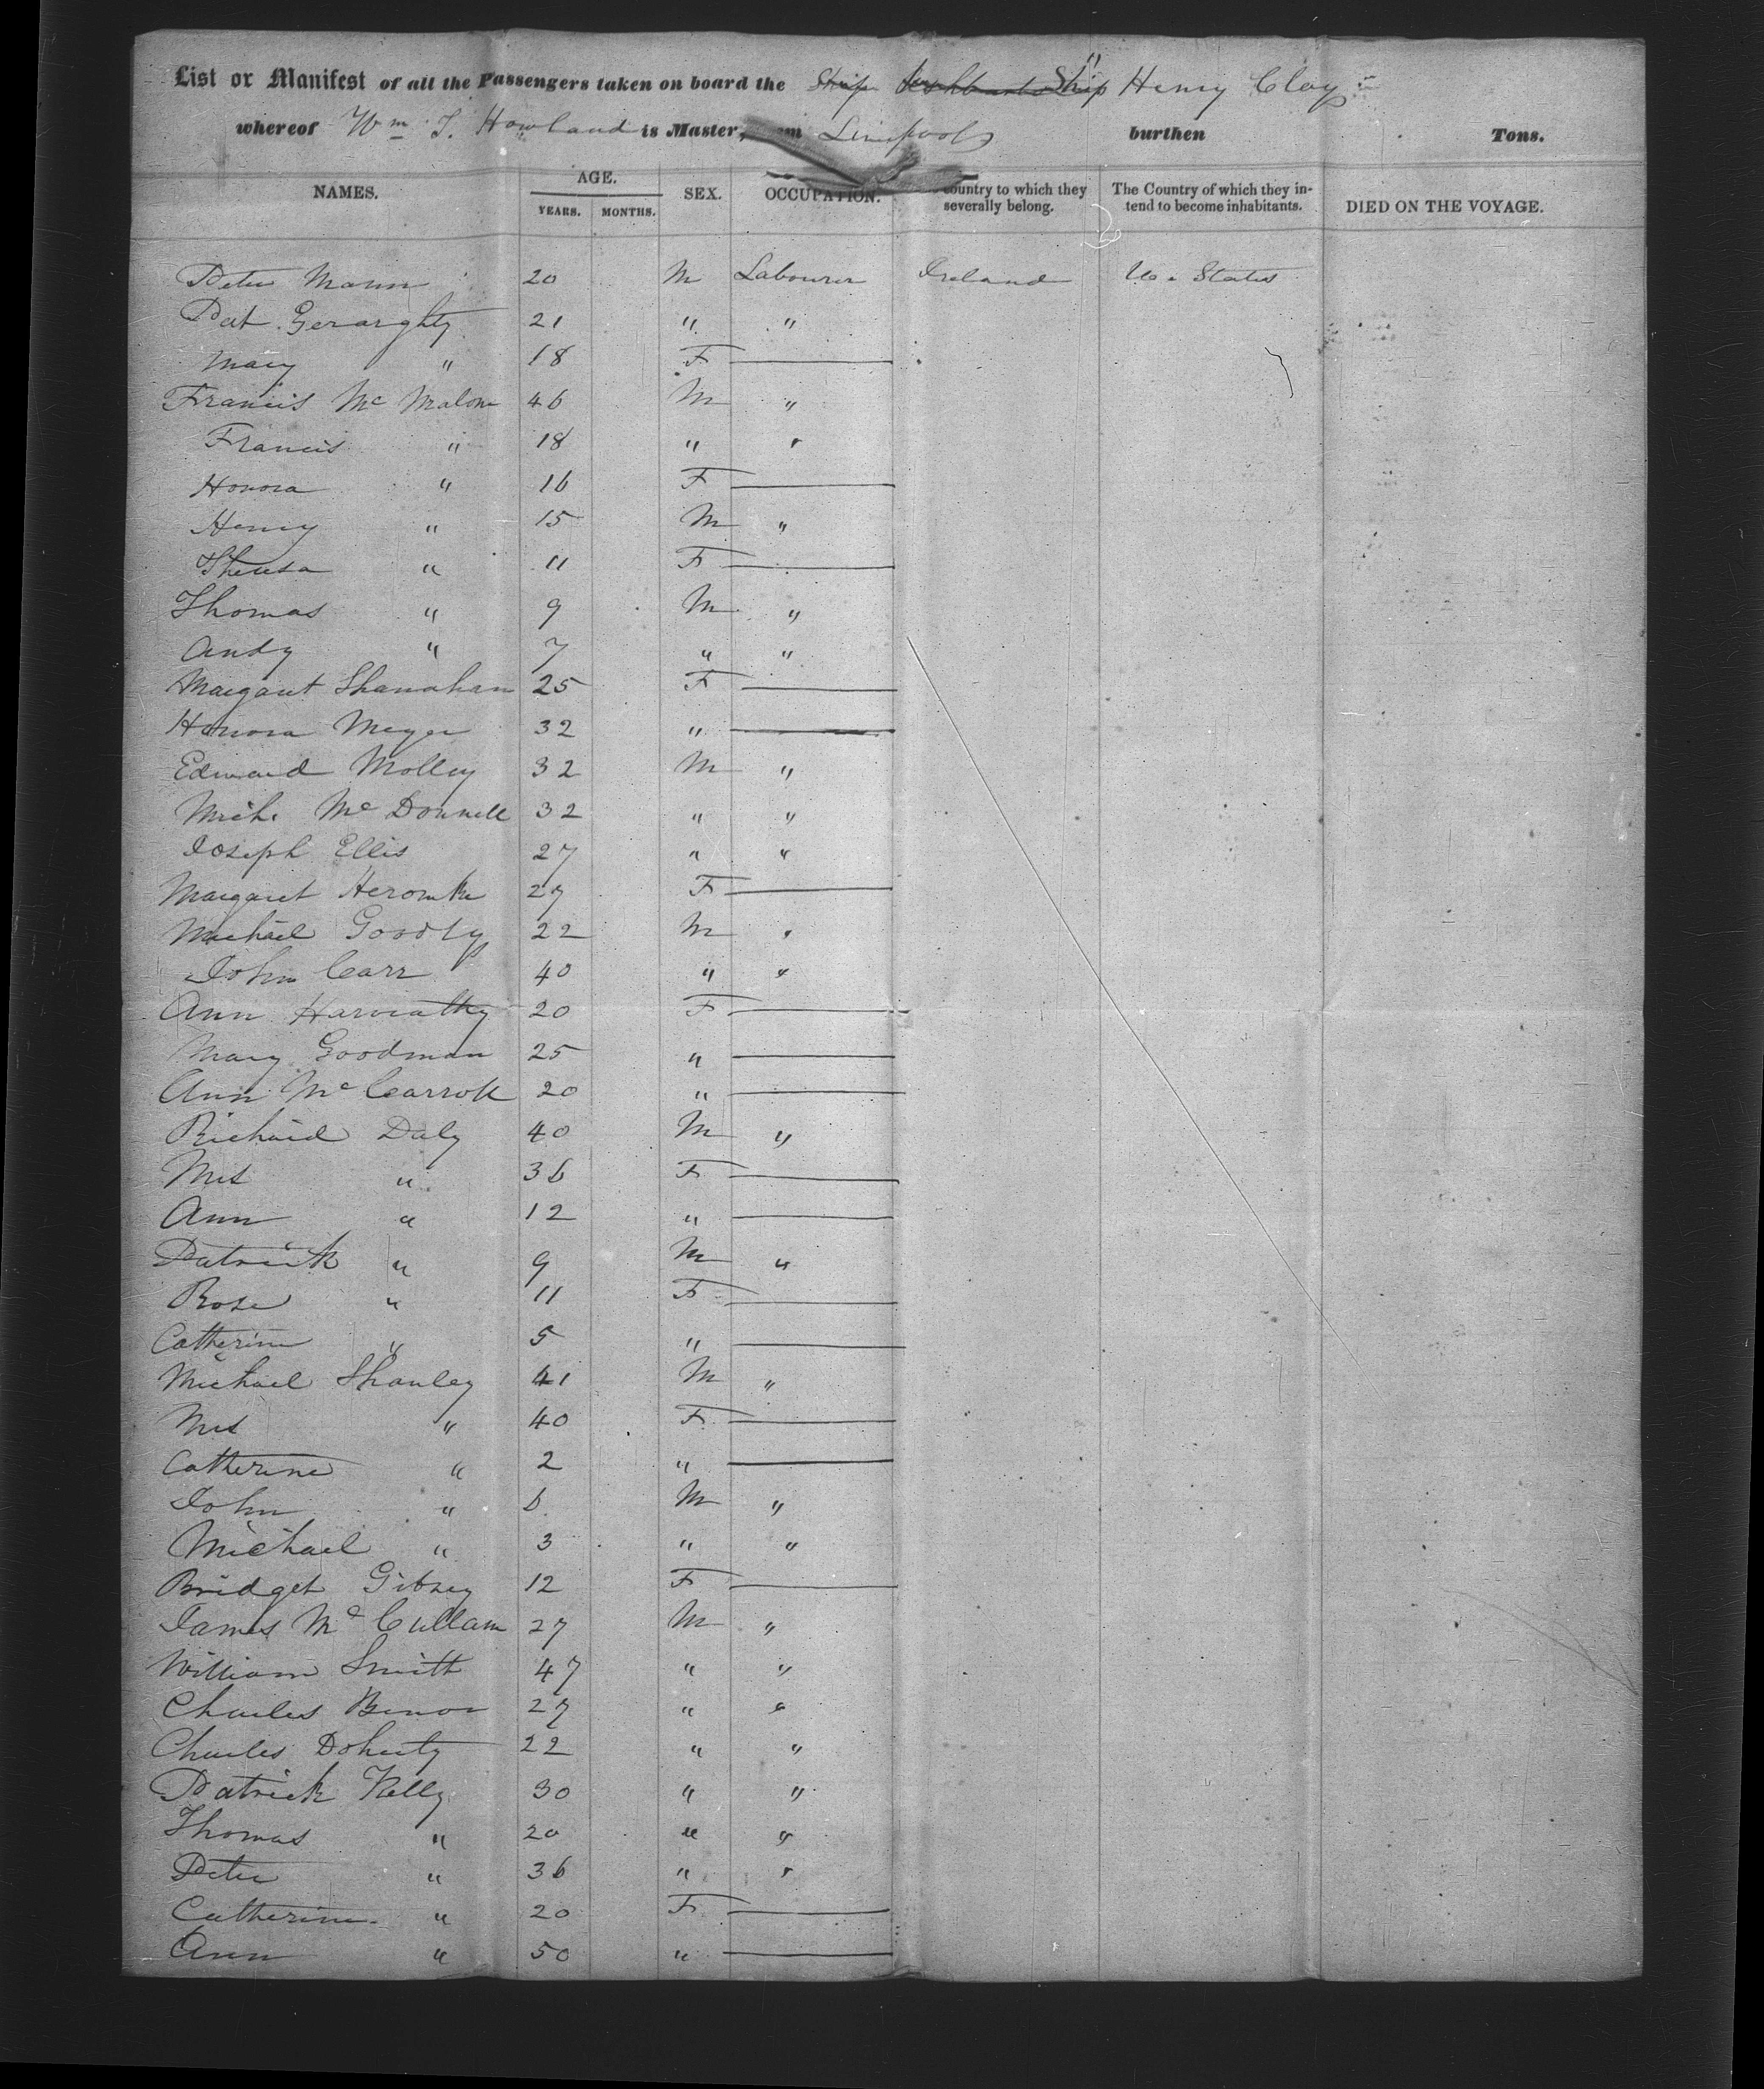 List or Manifest of all the Passengers taken on board the Ship Ship Henry Clay
whereof Wm. T. Howland is Master, from Liverpool burthen Tons.
NAMES. AGE. YEARS. MONTHS. SEX. OCCUPATION. Country to which they severally belong. The Country of which they intend to become inhabitants. DIED ON THE VOYAGE.
Peter Mann 20 M Labourer Ireland U. States
Pat Geraghty 21 " "
Mary " 18 F
Francis Mc Malone 46 M "
Francis " 18 " "
Honora " 16 F
Henry " 15 M "
Theresa " 11 F
Thomas " 9 M "
Andy " 7 " "
Margaret Shanahan 25 F
Honora Meger 32 "
Edward Molley 32 M "
Mich. Mc Donnell 32 " "
Joseph Ellis 27 " "
Margaret 27 F
Michael 22 M "
John Carr 40 " "
Ann 20 F
Mary Goodman 25 "
Ann Mc Carroll 20 "
Richard Daly 40 M "
Mrs " 36 F
Ann " 12 "
Patrick " 9 M "
Rose " 11 F
Catherine " 5 "
Michael Shanley 41 M "
Mrs " 40 F
Catherine " 2 "
John " 6 M "
Michael " 3 " "
Bridget Gibney 12 F
James Mc Cullam 27 M "
William Smith 47 " "
Charles 27 " "
Charles Doherty 22 " "
Patrick Kelly 30 " "
Thomas " 20 " "
Peter " 36 " "
Catherine " 20 F
Ann " 50 "